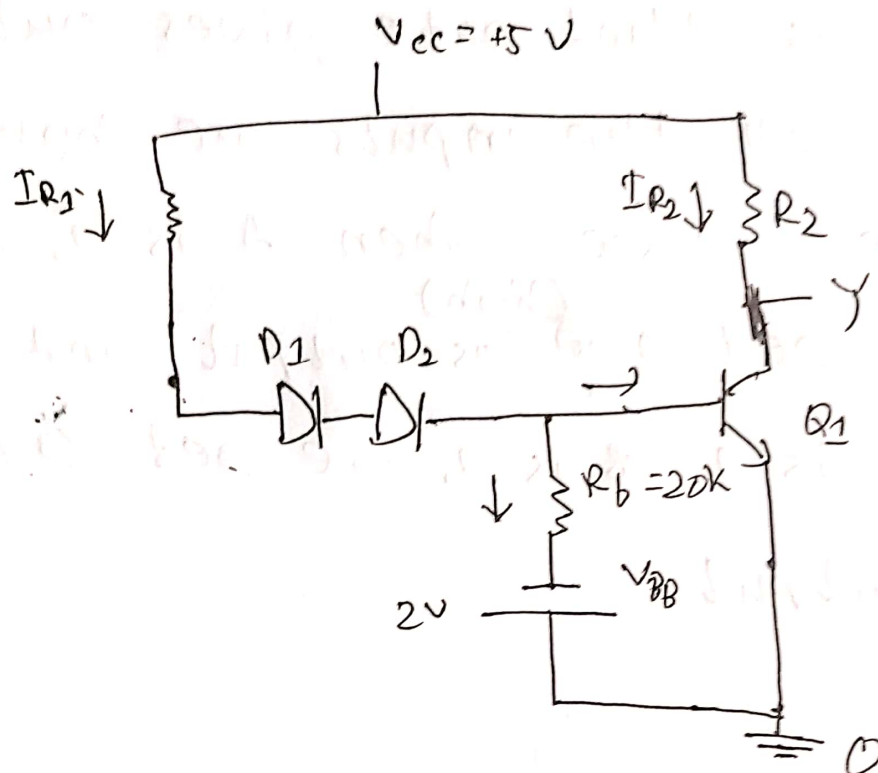 Vcc = +5 V
IR1
IR2
R2
Y
D1
D2
Q1
Rb = 20K
VBB
2V